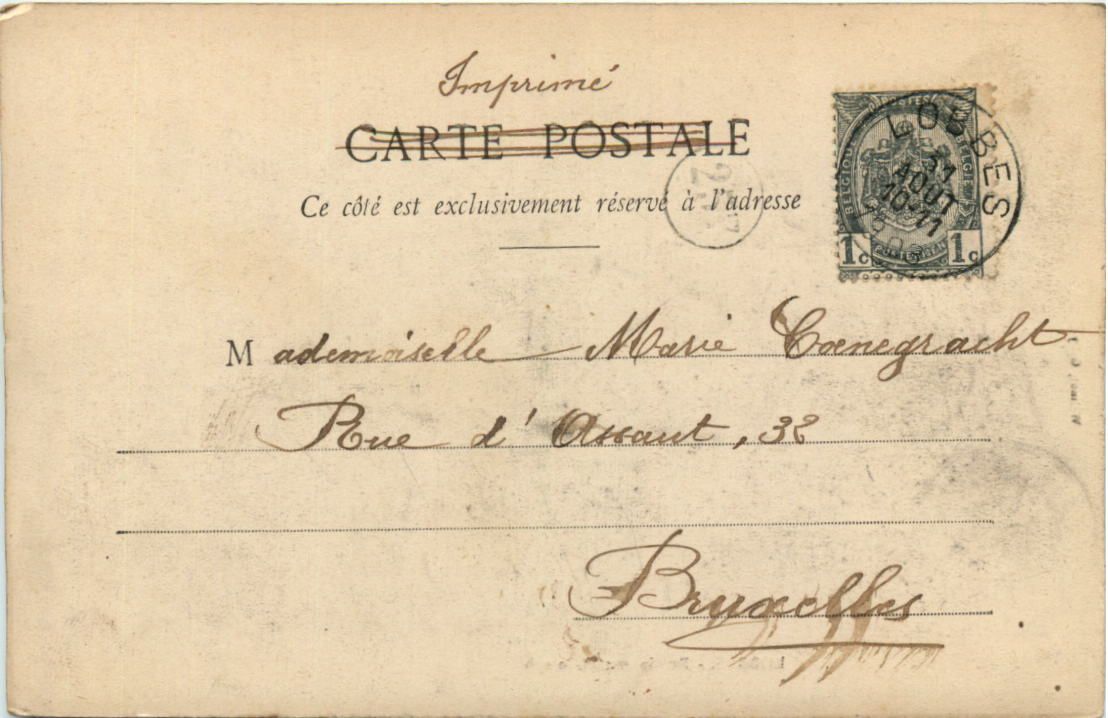 Imprimé
CARTE POSTALE
Ce côté est exclusivement réservé à l'adresse
LOBBES
31
AOUT
10-11
POSTES
BELGIQUE
BELGIË
POSTERIJEN
1c 1c
Mademoiselle Marie Coenegracht
Rue d'Assaut, 32
Bruxelles